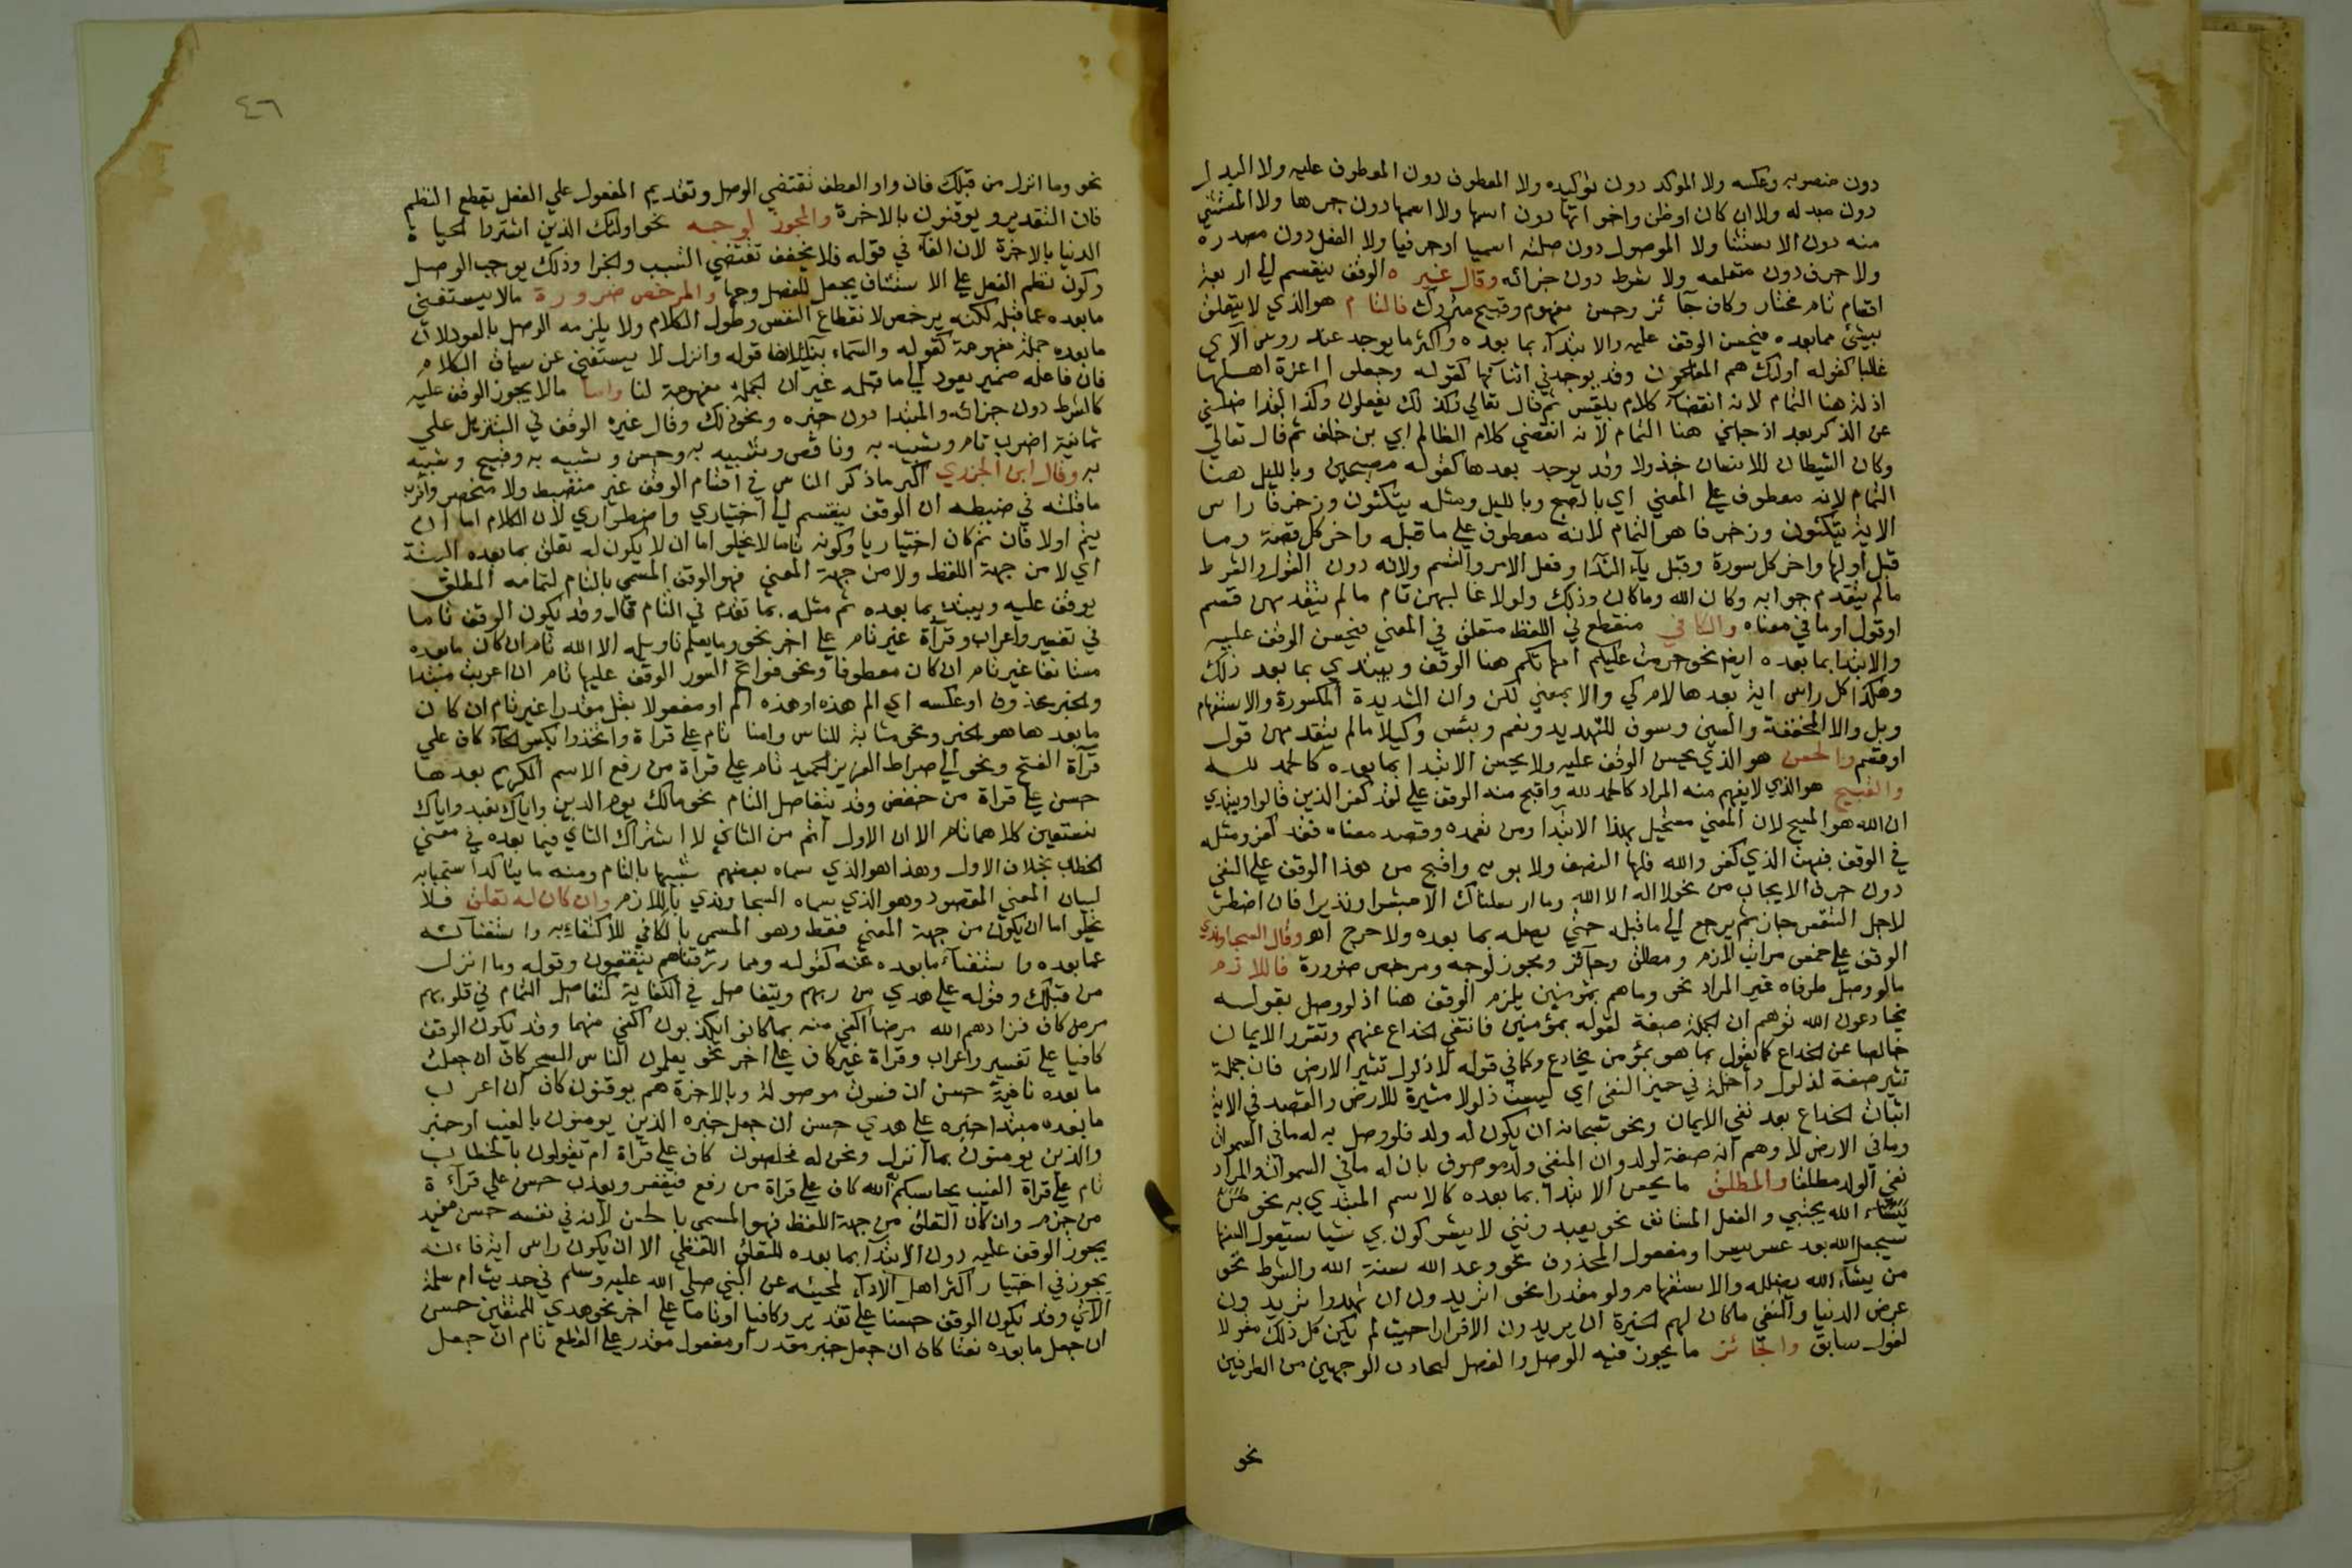 دون منصوبه وعكسه ولا الموكد دون توكيده ولا المعطوف دون المعطوف عليه ولا البدل
دون مبدله ولا ان كان او ظن واخواتها دون اسمها ولا اسمها دون خبرها ولا المستثنى
منه دون الاستثنا ولا الموصول دون صلته اسميا او حرفيا ولا الفعل دون مصدره
ولا حرف دون متعلقه ولا شرط دون جزائه وقال غيره الوقف ينقسم الي اربعة
اقسام تام مختار وكاف جآئز وحسن مفهوم وقبيح متروك فالتام هو الذي لا يتعلق
بشئ مما بعده فيحسن الوقف عليه والابتدآء بما بعده واكثر ما يوجد عند روس الآي
غالبا كقوله اولئك هم المفلحون وقد يوجد في اثنائها كقوله وجعلوا اعزة اهلها
اذلة هنا التمام لانه انقضآء كلام بلقيس ثم قال تعالي وكذلك يفعلون وكذا لقد اضلني
عن الذكر بعد اذ جاني هنا التمام لانه انقضي كلام الظالم ابي بن خلف ثم قال تعالي
وكان الشيطان للانسان خذولا وقد يوجد بعدها كقوله مصبحين وبالليل هنا
التمام لانه معطوف علي المعني اي بالصبح وبالليل ومثله يتكئون وزخرفا راس
الاية يتكئون وزخرفا هو التمام لانه معطوف علي ما قبله واخر كل قصة وما
قبل اولها واخر كل سورة وقبل يآء الندا وفعل الامر والقسم ولامه دون القول والشرط
مالم يتقدم جوابه وكان الله وما كان وذلك ولولا غالبهن تام مالم يتقدمهن قسم
او قول او ما في معناه والكافي منقطع في اللفظ متعلق في المعني فيحسن الوقف عليه
والابتدا بما بعده ايضا نحو حرمت عليكم امهاتكم هنا الوقف ويبتدي بما بعد ذلك
وهكذا كل راس اية بعدها لام كي والا بمعني لكن وان الشديدة المكسورة والاستفهام
وبل والا المخففة والسين وسوف للتهديد ونعم وبئس وكيلا مالم يتقدمهن قول
او قسم والحسن هو الذي يحسن الوقف عليه ولا يحسن الابتدا بما بعده كالحمد لله
والقبيح هو الذي لا يفهم منه المراد كالحمد لله واقبح منه الوقف علي لقد كفر الذين قالوا ويبتدي
ان الله هو المسيح لان المعني مستحيل بهذا الابتدا ومن تعمده وقصد معناه فقد كفر ومثله
في الوقف فبهت الذي كفر والله فلها النصف ولابويه واقبح من هذا الوقف علي النفي
دون حرف الايجاب من نحو لا اله الا الله وما ارسلناك الا مبشرا ونذيرا فان اضطر
لاجل التنفس جاز ثم يرجع الي ما قبله حتي يصله بما بعده ولا حرج اهـ وقال السجاوندي
الوقف علي خمس مراتب لازم ومطلق وجآئز ومجوز لوجه ومرخص ضرورة فاللازم
مالو وصل طرفاه غير المراد نحو وما هم بمؤمنين يلزم الوقف هنا اذ لو وصل بقوله
يخادعون الله توهم ان الجملة صفة لقوله بمؤمنين فانتفي الخداع عنهم وتقرر الايمان
خالصا عن الخداع كما تقول ما هو بمؤمن يخادع وكما في قوله لا ذلول تثير الارض فان جملة
تثير صفة لذلول داخلة في حيز النفي اي ليست ذلولا مثيرة للارض والقصد في الاية
اثبات الخداع بعد نفي الايمان ونحو سبحانه ان يكون له ولد فلو وصل به له ما في السموات
وما في الارض لاوهم انه صفة لولد وان المنفي ولد موصوف بان له ما في السموات والمراد
نفي الولد مطلقا والمطلق ما يحسن الابتدا بما بعده كالاسم المبتدي به نحو
الله يجتبي والفعل المستانف نحو يعبدونني لا يشركون بي شيا سيقول السفها
سيجعل الله بعد عسر يسرا ومفعول المحذوف نحو وعد الله سنة الله والشرط نحو
من يشآء الله يضلله والاستفهام ولو مقدرا نحو اتريدون ان تهدوا تريدون
عرض الدنيا والنفي ما كان لهم الخيرة ان يريدون الا فرارا حيث لم يكن كل ذلك مقولا
لقول سابق والجائز ما يجوز فيه الوصل والفصل لتجاذب الوجهين من الطرفين
نحو
٤٦
نحو وما انزل من قبلك فان واو العطف تقتضي الوصل وتقديم المفعول علي الفعل يقطع النظم
فان التقدير ويوقنون بالاخرة والمجوز لوجه نحو اولئك الذين اشتروا الحياة
الدنيا بالاخرة لان الفآء في قوله فلا يخفف تقتضي التسبب والجزا وذلك يوجب الوصل
وكون نظم الفعل علي الاستئناف يجعل للفصل وجها والمرخص ضرورة مالا يستغني
ما بعده عما قبله لكنه يرخص لانقطاع النفس وطول الكلام ولا يلزمه الوصل بالعود لان
ما بعده جملة مفهومة كقوله والسماء بناء لان قوله وانزل لا يستغني عن سياق الكلام
فان فاعله ضمير يعود الي ما قبله غير ان الجملة مفهومة لنا واما مالا يجوز الوقف عليه
كالشرط دون جزائه والمبتدا دون خبره ونحو ذلك وقال غيره الوقف في التنزيل علي
ثمانية اضرب تام وشبيه به وناقص وشبيه به وحسن وشبيه به وقبيح وشبيه
به وقال ابن الجزري اكثر ما ذكر الناس في اقسام الوقف غير منضبط ولا منحصر واقرب
ما قلته في ضبطه ان الوقف ينقسم الي اختياري واضطراري لان الكلام اما ان
يتم اولا فان تم كان اختياريا وكونه تاما لا يخلو اما ان لا يكون له تعلق بما بعده البتة
اي لا من جهة اللفظ ولا من جهة المعني فهو الوقف المسمي بالتام لتمامه المطلق
يوقف عليه ويبتدء بما بعده ثم مثله بما تقدم في التام قال وقد يكون الوقف تاما
في تفسير واعراب وقرآة غير تام علي اخر نحو وما يعلم تاويله الا الله تام ان كان ما بعده
مستانفا غير تام ان كان معطوفا ونحو فواتح السور الوقف عليها تام ان اعربت مبتدا
والخبر محذوف او عكسه اي الم هذه او هذه الم او مفعولا بقل مقدرا غير تام ان كان
ما بعدها هو الخبر ونحو مثابة للناس وامنا تام علي قراة واتخذوا بكسر الخآء كاف علي
قرآة الفتح ونحو الي صراط العزيز الحميد تام علي قراة من رفع الاسم الكريم بعدها
حسن علي قراة من خفض وقد يتفاضل التام نحو مالك يوم الدين واياك نعبد واياك
نستعين كلاهما تام الا ان الاول اتم من الثاني لاشتراك الثاني فيما بعده في معني
الخطاب بخلاف الاول وهذا هو الذي سماه بعضهم شبيها بالتام ومنه ما يتاكد استحبابه
لبيان المعني المقصود وهو الذي سماه السجاوندي باللازم وان كان له تعلق فلا
يخلو اما ان يكون من جهة المعني فقط وهو المسمي بالكافي للاكتفاء به واستغنائه
عما بعده واستغنآء ما بعده عنه كقوله ومما رزقناهم ينفقون وقوله وما انزل
من قبلك وقوله علي هدي من ربهم ويتفاضل في الكفاية كتفاضل التمام في قلوبهم
مرض كاف فزادهم الله مرضا اكفي منه بما كانوا يكذبون اكفي منهما وقد يكون الوقف
كافيا علي تفسير واعراب وقراة غير كاف علي اخر نحو يعلمون الناس السحر كاف ان جعلت
ما بعده نافية حسن ان فسرت موصولة وبالاخرة هم يوقنون كاف ان اعرب
ما بعده مبتدا خبره علي هدي حسن ان جعل خبره الذين يومنون بالغيب او خبر
والذين يومنون بما انزل ونحن له مخلصون كاف علي قراة ام تقولون بالخطاب
تام علي قراة الغيب يحاسبكم به الله كاف علي قراة من رفع فيغفر ويعذب حسن علي قرآءة
من جزم وان كان التعلق من جهة اللفظ فهو المسمي بالحسن لانه في نفسه حسن مفيد
يجوز الوقف عليه دون الابتدآ بما بعده للتعلق اللفظي الا ان يكون راس اية فانه
يجوز في اختيار اكثر اهل الادآء لمجيئه عن النبي صلي الله عليه وسلم في حديث ام سلمة
الآتي وقد يكون الوقف حسنا علي تقدير وكافيا او تاما علي اخر نحو هدي للمتقين حسن
ان جعل ما بعده نعتا كاف ان جعل خبر مقدر او مفعول مقدر علي القطع تام ان جعل